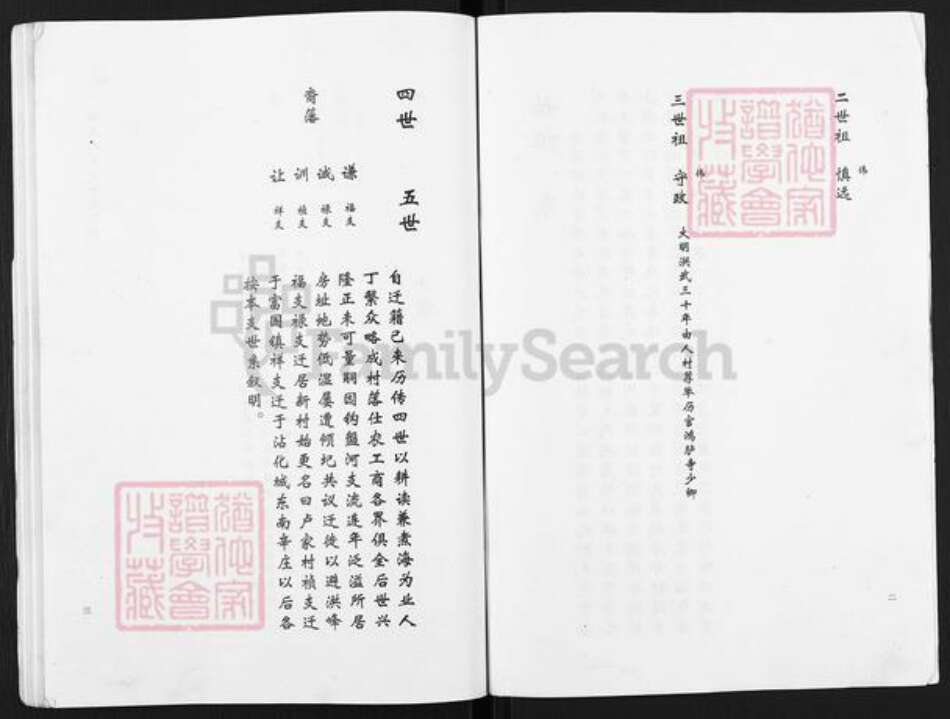 二世祖 慎选
三世祖 守政 大明洪武三十年由人材荐举历官鸿胪寺少卿
二
四世 五世
斋藩
谦 福支
诚 禄支
训 祯支
让 祥支
自迁籍已来历传四世以耕读兼煮海为业人
丁繁众略成村落仕农工商各界俱全后世兴
隆正未可量嗣因钩盘河支流连年泛溢所居
房址地势低湿屡遭倾圮共议迁徙以避洪峰
福支禄支迁居新村始更名曰卢家村祯支迁
于富国镇祥支迁于沾化城东南辛庄以后各
按本支世系叙明。
三
FamilySearch